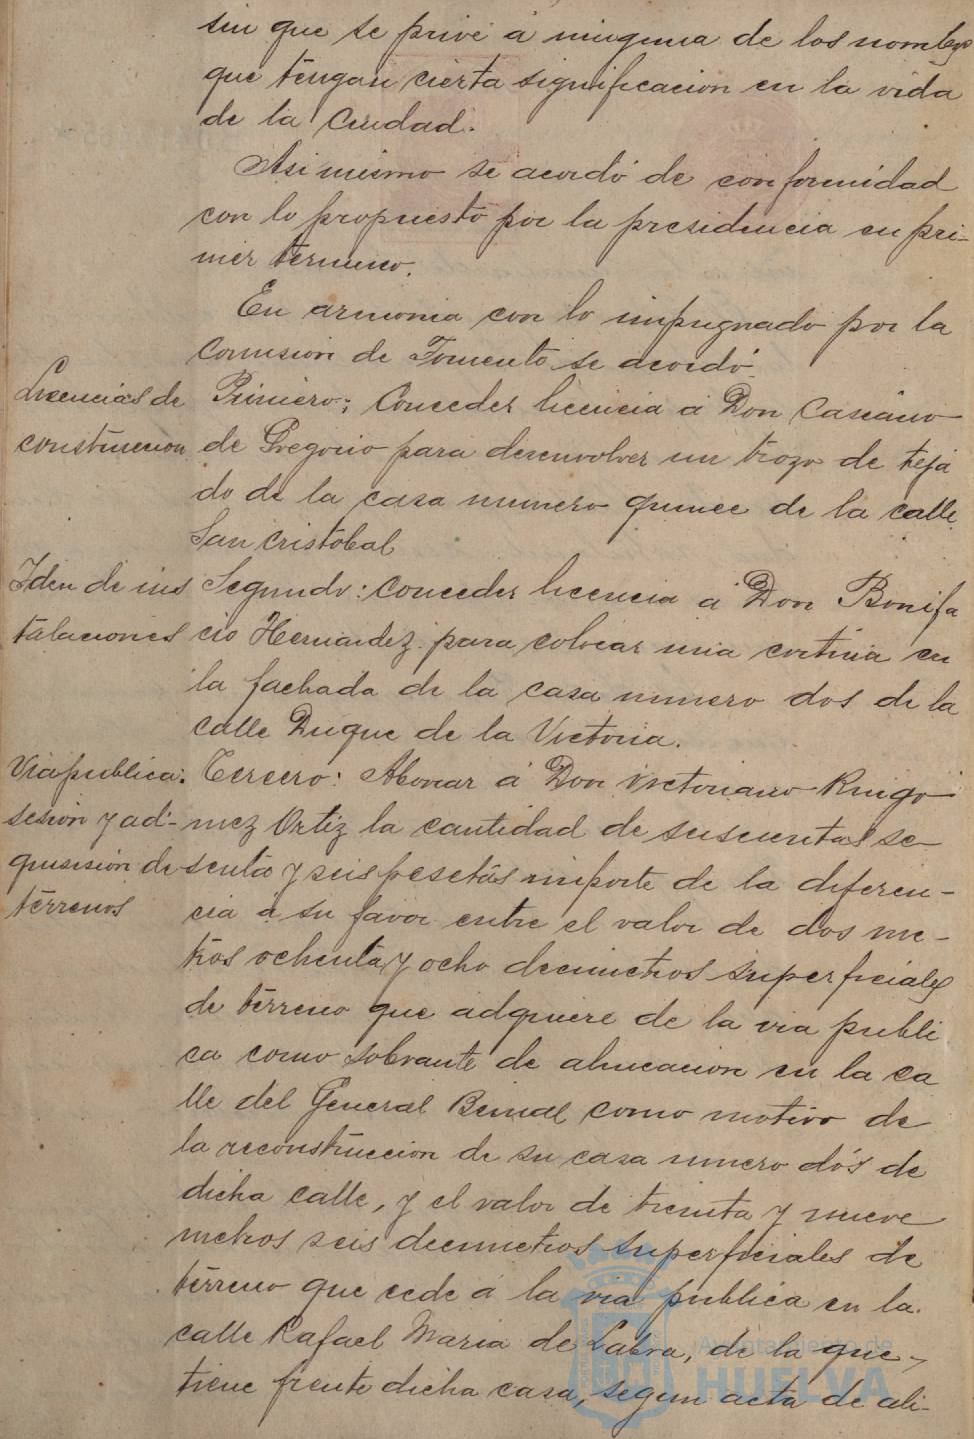 sin que se prive á ninguna de los nombres
que tengan cierta significacion en la vida
de la Ciudad.
Asi mismo se acordó de conformidad
con lo propuesto por la presidencia en pri-
mer termino.
En armonia con lo impugnado por la
Comision de Fomento se acordó.
Licencias de
construccion
Primero; Conceder licencia á Don Casiano
de Gregorio para desenvolver un trozo de teja
do de la casa numero quince de la calle
San Cristobal
Iden de ins
talaciones
Segundo: Conceder licencia á Don Bonifa
cio Hernandez para colocar una cortina en
la fachada de la casa numero dos de la
calle Duque de la Victoria.
Via publica:
sesión y ad-
quisisión de
terrenos
Tercero: Abonar á Don Victoriano
mez Ortiz la cantidad de se-
senta y seis pesetas importe de la diferen-
cia á su favor entre el valor de dos me-
tros ochenta y ocho decimetros superficiales
de terreno que adquiere de la via publi
ca como sobrante de alineacion en la ca
lle del General Bernal como motivo de
la reconstruccion de su casa numero dós de
dicha calle, y el valor de treinta y nueve
metros seis decimetros superficiales de
terreno que cede á la via publica en la
calle Rafael Maria de Labra, de la que
tiene frente dicha casa, segun acta de ali-
Ayuntamiento de
HUELVA